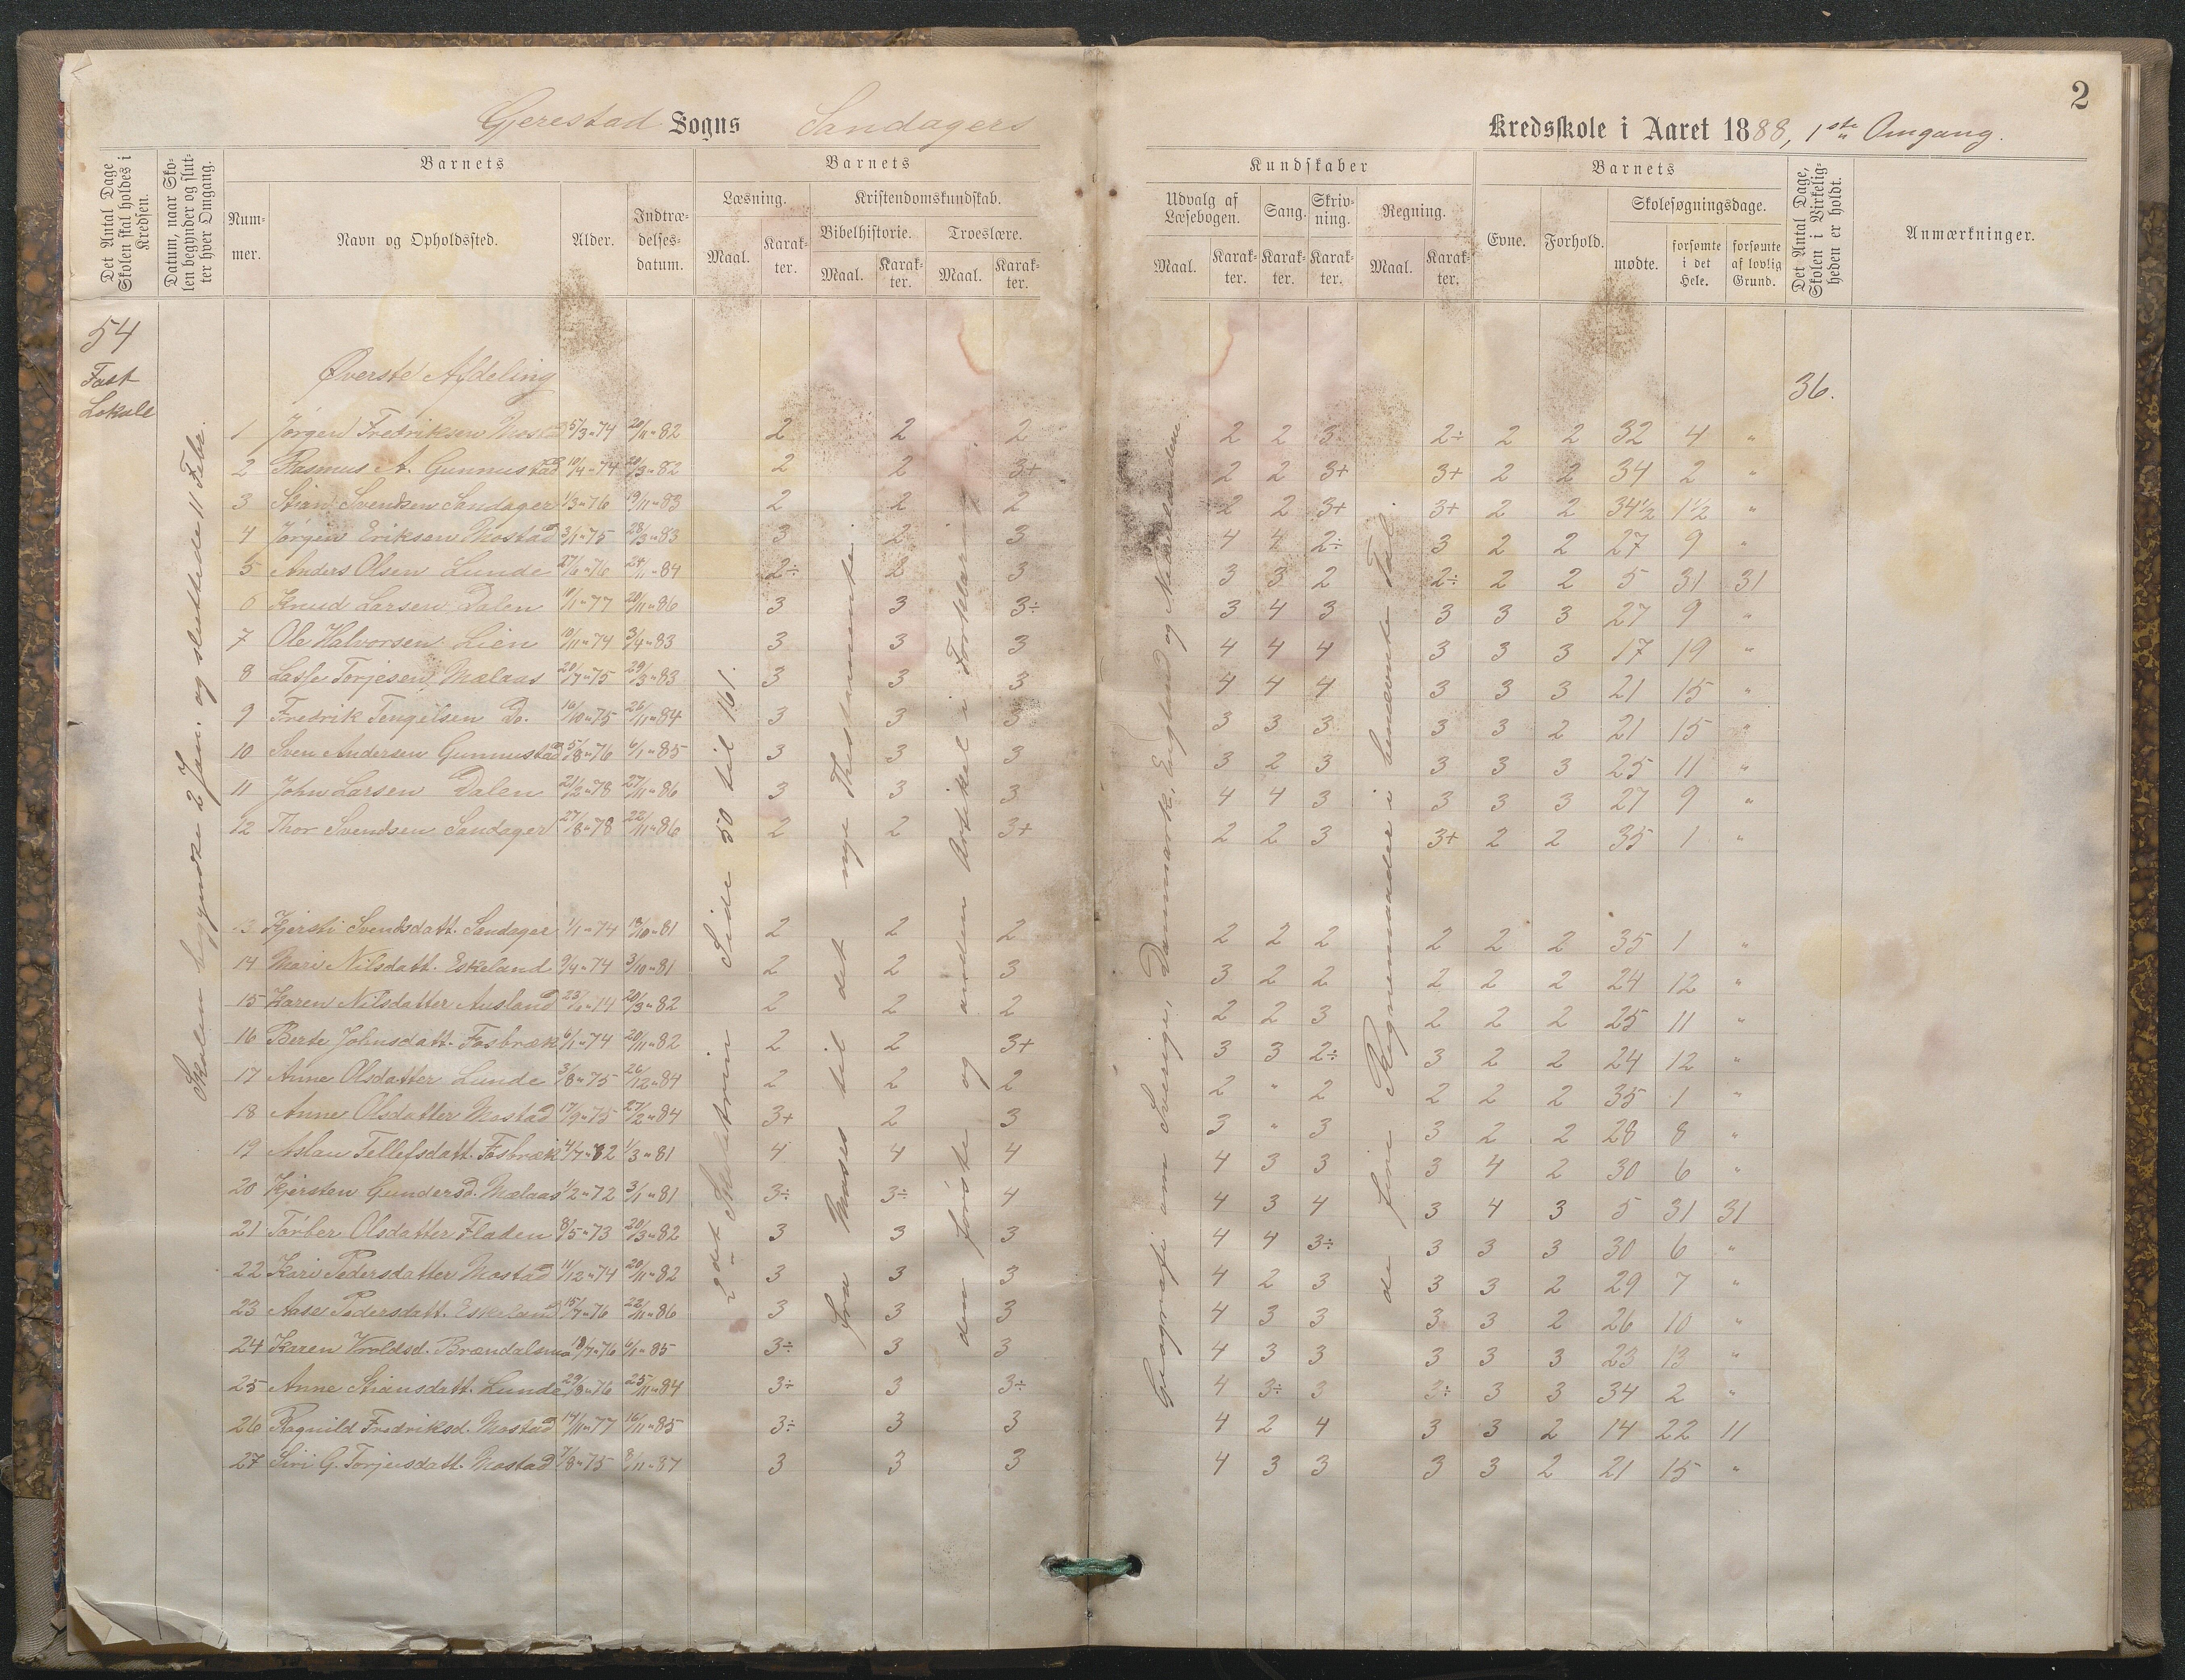 2
Gjerestad Sogns Sandagers Kredsskole i Aaret 1888, 1ste Omgang.
Det Antal Dage Skolen skal holdes i Kredsen.
Datum, naar Skolen begynder og slutter hver Omgang.
Barnets
Nummer.
Navn og Opholdssted.
Alder.
Indtrædelsesdatum.
Barnets
Læsning.
Maal.
Karakter.
Kristendomskundskab.
Bibelhistorie.
Maal.
Karakter.
Troeslære.
Maal.
Karakter.
Kundskaber
Udvalg af Læsebogen.
Maal.
Karakter.
Sang.
Karakter.
Skrivning.
Karakter.
Regning.
Maal.
Karakter.
Barnets
Evne.
Forhold.
Skolesøgningsdage.
mødte.
forsømte i det Hele.
forsømte af lovlig Grund.
Det Antal Dage, Skolen i Virkeligheden er holdt.
Anmærkninger.
54
Fast
Lokale
Skolen begyndte 2 Jan. og sluttede 11 Febr.
Øverste Afdeling
36.
2det Skoletrin Side 50 til 161.
Fra Moses til det nye Thestamente.
den første og anden Artikel i Forklaring
Geografi om Sverige, Danmark, England og Nederlandene
de fire Regnemaader i benævnte Tal.
1 Jørgen Fredriksen Most 5/3-74 20/11-82 2 2 2 2 2 3 2÷ 2 2 32 4 "
2 Rasmus A. Gunnustad 10/4-74 20/3-82 2 2 3+ 2 2 3+ 3+ 2 2 34 2 "
3 Stian Svendsen Sandager 1/3-76 19/11-83 2 2 2 2 2 3+ 3+ 2 2 34½ 1½ "
4 Jørgen Eriksen Mostad 3/1-75 28/3-83 3 2 3 4 4 2÷ 3 2 2 27 9 "
5 Anders Olsen Lunde 27/6-76 24/11-84 2÷ 2 3 3 3 2 2÷ 2 2 5 31 31
6 Knud Larsen Dalen 10/1-77 20/11-86 3 3 3÷ 3 4 3 3 3 3 27 9 "
7 Ole Halvorsen Lien 10/11-74 3/4-83 3 3 3 4 4 4 3 3 3 17 19 "
8 Lasse Torjesen Mælaas 20/7-75 29/3-83 3 3 3 4 4 4 3 3 3 21 15 "
9 Fredrik Tengelsen Do. 16/10-75 26/11-84 3 3 3 3 3 3 3 3 2 21 15 "
10 Sven Andersen Gunnustad 5/8-76 6/1-85 3 3 3 3 2 3 3 3 3 25 11 "
11 John Larsen Dalen 21/2-78 27/11-86 3 3 3 4 4 3 3 3 3 27 9 "
12 Thor Svendsen Sandager 27/8-78 22/11-86 2 2 3+ 2 2 3 3+ 2 2 35 1 "
13 Kjersti Svendsdatt. Sandager 1/1-74 13/10-81 2 2 2 2 2 2 2 2 2 35 1 "
14 Mari Nilsdatt. Eskeland 9/4-74 3/10-81 2 2 3 3 2 2 2 2 2 24 12 "
15 Karen Nilsdatter Ausland 23/6-74 20/3-82 2 2 2 2 2 3 2 2 2 25 11 "
16 Berte Johnsdatt. Fosbræk 6/1-74 20/11-82 2 2 3+ 3 3 2÷ 3 2 2 24 12 "
17 Anne Olsdatter Lunde 3/8-75 26/12-84 2 2 2 2 " 2 2 2 2 35 1 "
18 Anne Olsdatter Mostad 17/9-75 27/2-84 3+ 2 3 3 " 3 3 2 2 28 8 "
19 Aslau Tellefsdatt. Fosbræk 4/7-82 1/3-81 4 4 4 4 3 3 3 4 2 30 6 "
20 Kjersten Gundersd. Mælaas 1/2-72 3/1-81 3÷ 3÷ 4 4 3 4 3 4 3 5 31 31
21 Tarber Olsdatter Fladen 8/5-73 20/3-82 3 3 3 4 4 3÷ 3 3 3 30 6 "
22 Kari Pedersdatter Mostad 11/12-74 20/11-82 3 3 3 4 2 3 3 3 2 29 7 "
23 Aase Pedersdatt. Eskeland 15/7-76 22/11-86 3 3 3 4 3 3 3 3 2 26 10 "
24 Karen Vroldsd. Brændalsmo 19/7-76 6/1-85 3÷ 3 3 4 3 3 3 3 3 23 13 "
25 Anne Stiansdatt. Lunde 29/8-76 25/11-84 3÷ 3 3÷ 4 3÷ 3 3÷ 3 3 34 2 "
26 Ragnild Fredriksd. Mostad 14/11-77 16/11-85 3÷ 3 3 4 2 4 3 3 2 14 22 11
27 Siri G. Torjusdatt. Mostad 7/8-75 8/11-87 3 3 3 4 3 3 3 3 2 21 15 "